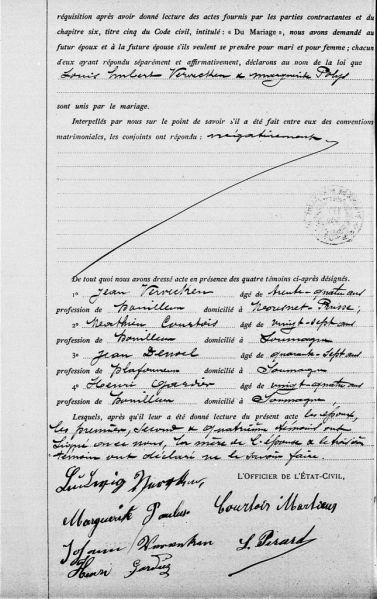 réquisition après avoir donné lecture des actes fournis par les parties contractantes et du
chapitre six, titre cinq du Code civil, intitulé : « Du Mariage », nous avons demandé au
futur époux et à la future épouse s'ils veulent se prendre pour mari et pour femme ; chacun
d'eux ayant répondu séparément et affirmativement, déclarons au nom de la loi que
Louis Imbert Vervecken & Marguerite
sont unis par le mariage.
Interpellés par nous sur le point de savoir s'il a été fait entre eux des conventions
matrimoniales, les conjoints ont répondu : négativement
De tout quoi nous avons dressé acte en présence des quatre témoins ci-après désignés.
1° Jean Vervecken âgé de trente-quatre ans
profession de houilleur domicilié à Moresnet-Prusse
2° Mathieu Courtois âgé de vingt-sept ans
profession de houilleur domicilié à Soumagne
3° Jean âgé de quarante-sept ans
profession de plafonneur domicilié à Soumagne
4° Henri Gardier âgé de vingt-quatre ans
profession de houilleur domicilié à Soumagne,
Lesquels, après qu'il leur a été donné lecture du présent acte les époux,
les premier, second & quatrième témoins ont
signé avec nous, la mère de l'épouse & le troisième
témoin ont déclaré ne le savoir faire.
L'OFFICIER DE L'ÉTAT-CIVIL,
Ludwig
Marguerite Courtois Mathieu
Johann
L. Pirard
Henri Gardier